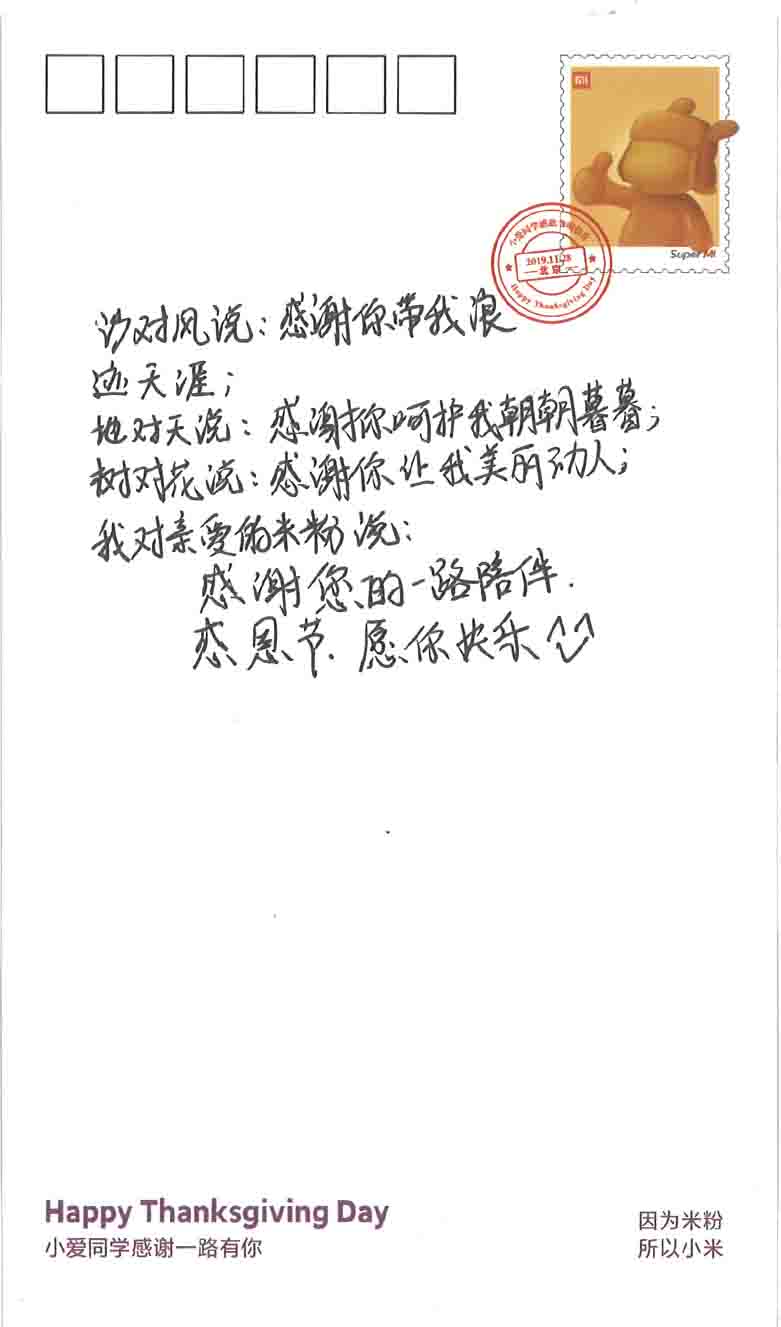 MI
Super MI
2019.11.28
北京
Happy Thanksgiving Day
沙对风说：感谢你带我浪
迹天涯；
地对天说：感谢你呵护我朝朝暮暮；
树对花说：感谢你让我美丽动人；
我对亲爱的米粉说：
感谢您的一路陪伴.
感恩节.愿你快乐
Happy Thanksgiving Day
小爱同学感谢一路有你
因为米粉
所以小米